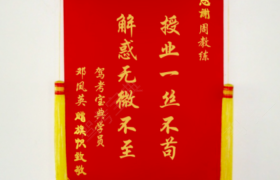 感谢周教练
授业一丝不苟
解惑无微不至
驾考宝典学员
邓凤英 赠旗帜致敬